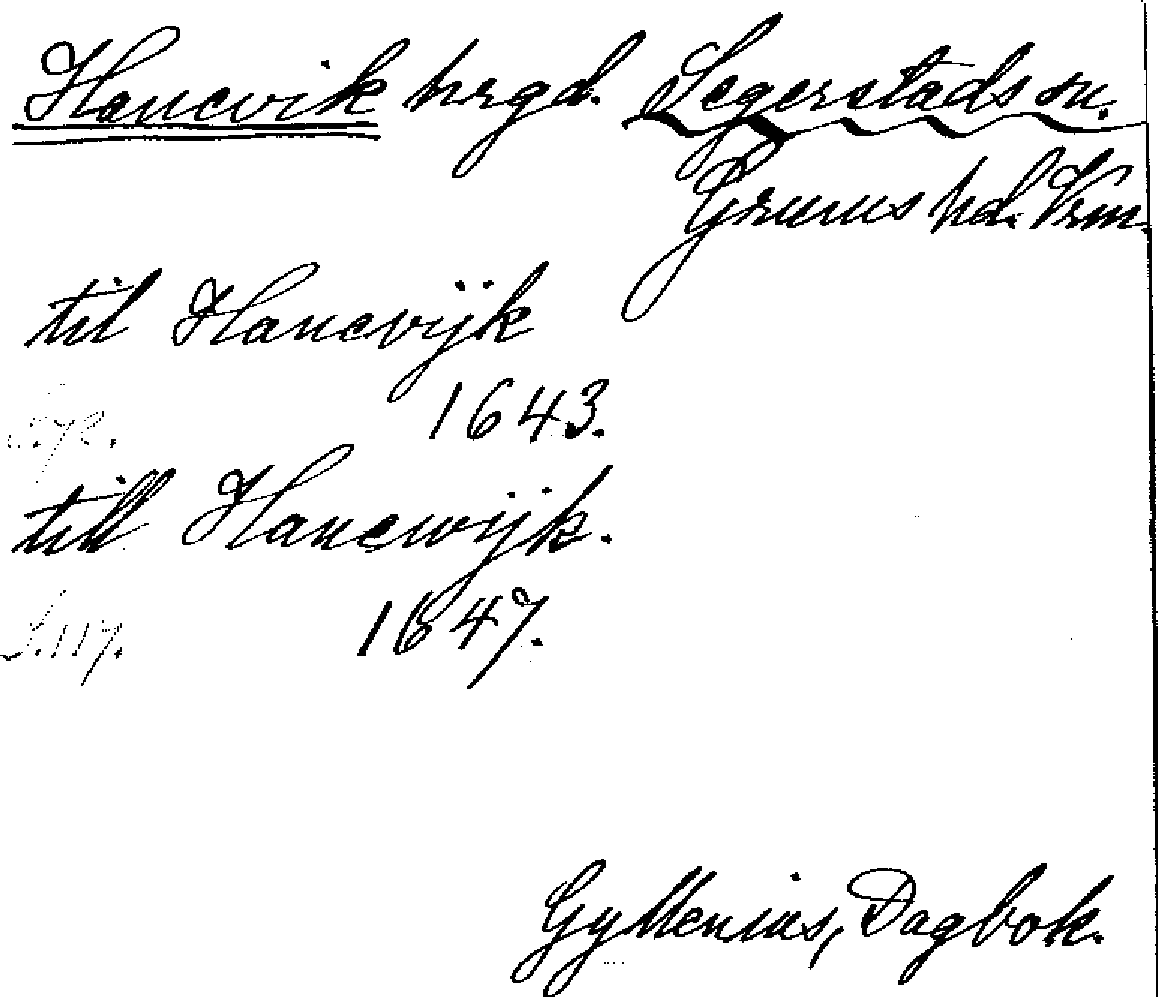 Hanevik hrgd. Segerstads sn.
Grums hd. Vrm.
til Hanevijk
S. 72. 1643.
till Hanewijk.
S. 117. 1647.
Gyllenius, Dagbok.